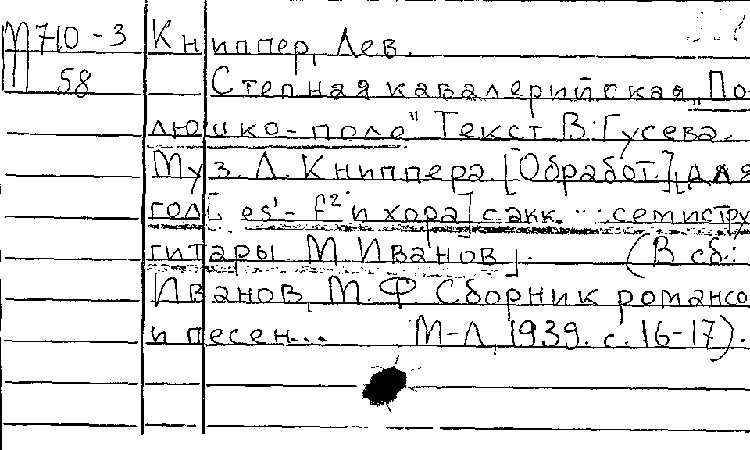 М710-3 Книппер, Лев.
58 Степная кавалерийская „По-
люшко-поле" Текст В. Гусева.
Муз. Л. Книппера. [Обработ.] для
гол[. es¹- f² и хора] с акк. семистру
гитары М. Иванов.. (В сб.:
Иванов, М.Ф Сборник романсо
и песен... М-Л, 1939. с. 16-17).